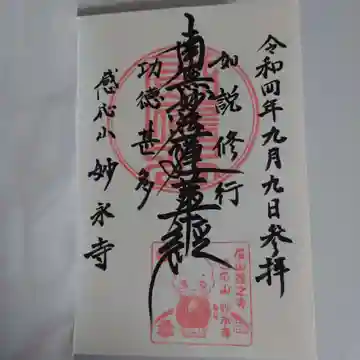 令和四年九月九日参拝
如説修行
南無妙法蓮華経
功徳甚多
感応山妙永寺